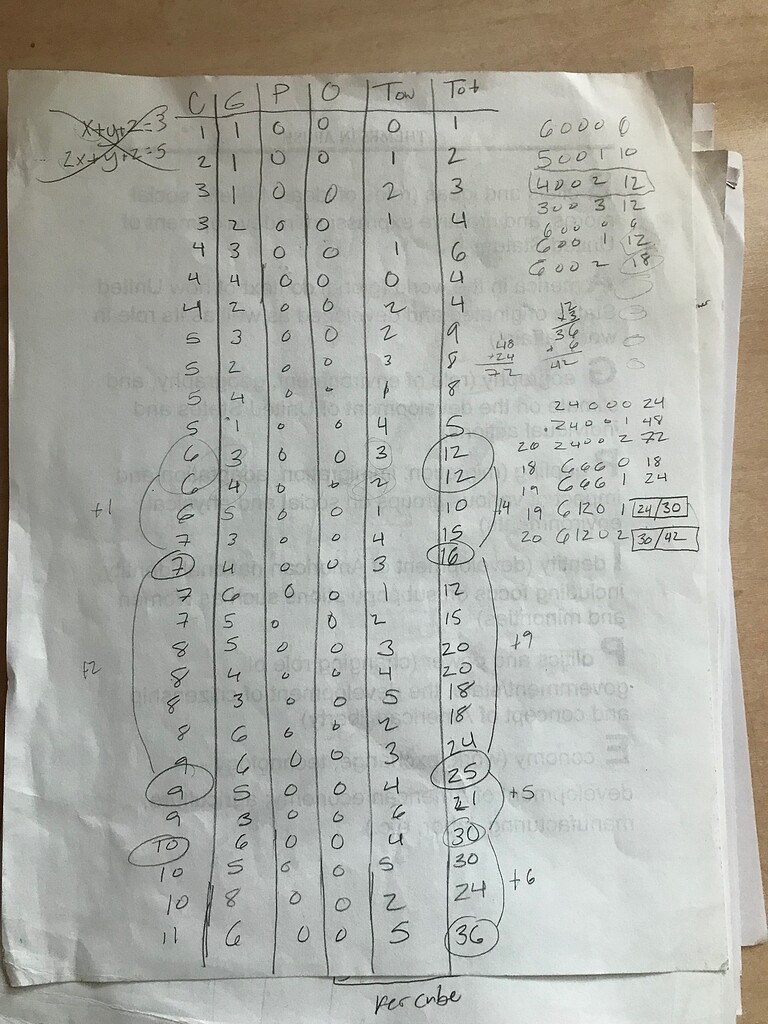 C G P O Tow Tot
x+y+z=3
2x+y+z=5
1 1 0 0 0 1
2 1 0 0 1 2
3 1 0 0 2 3
3 2 0 0 1 4
4 3 0 0 1 6
4 4 0 0 0 4
4 2 0 0 2 4
5 3 0 0 2 9
5 2 0 0 3 8
5 4 0 0 1 8
5 1 0 0 4 5
6 3 0 0 3 12
6 4 0 0 2 12
6 5 0 0 1 10
7 3 0 0 4 15
7 4 0 0 3 16
7 6 0 0 1 12
7 5 0 0 2 15
8 5 0 0 3 20
8 4 0 0 4 20
8 3 0 0 5 18
8 6 0 0 2 18
9 6 0 0 3 24
9 5 0 0 4 25
9 3 0 0 6 21
10 6 0 0 4 30
10 5 0 0 5 30
10 8 0 0 2 24
11 6 0 0 5 36
+1
+2
+4
+9
+5
+6
6 0 0 0 0
5 0 0 1 10
4 0 0 2 12
3 0 0 3 12
6 0 0 0 6
6 0 0 1 12
6 0 0 2 18
12
×3
36
+ 6
42
48
+24
72
24 0 0 0 24
24 0 0 1 48
20 24 0 0 2 72
18 6 6 6 0 18
19 6 6 6 1 24
19 6 12 0 1 24/30
20 6 12 0 2 36/42
per cube